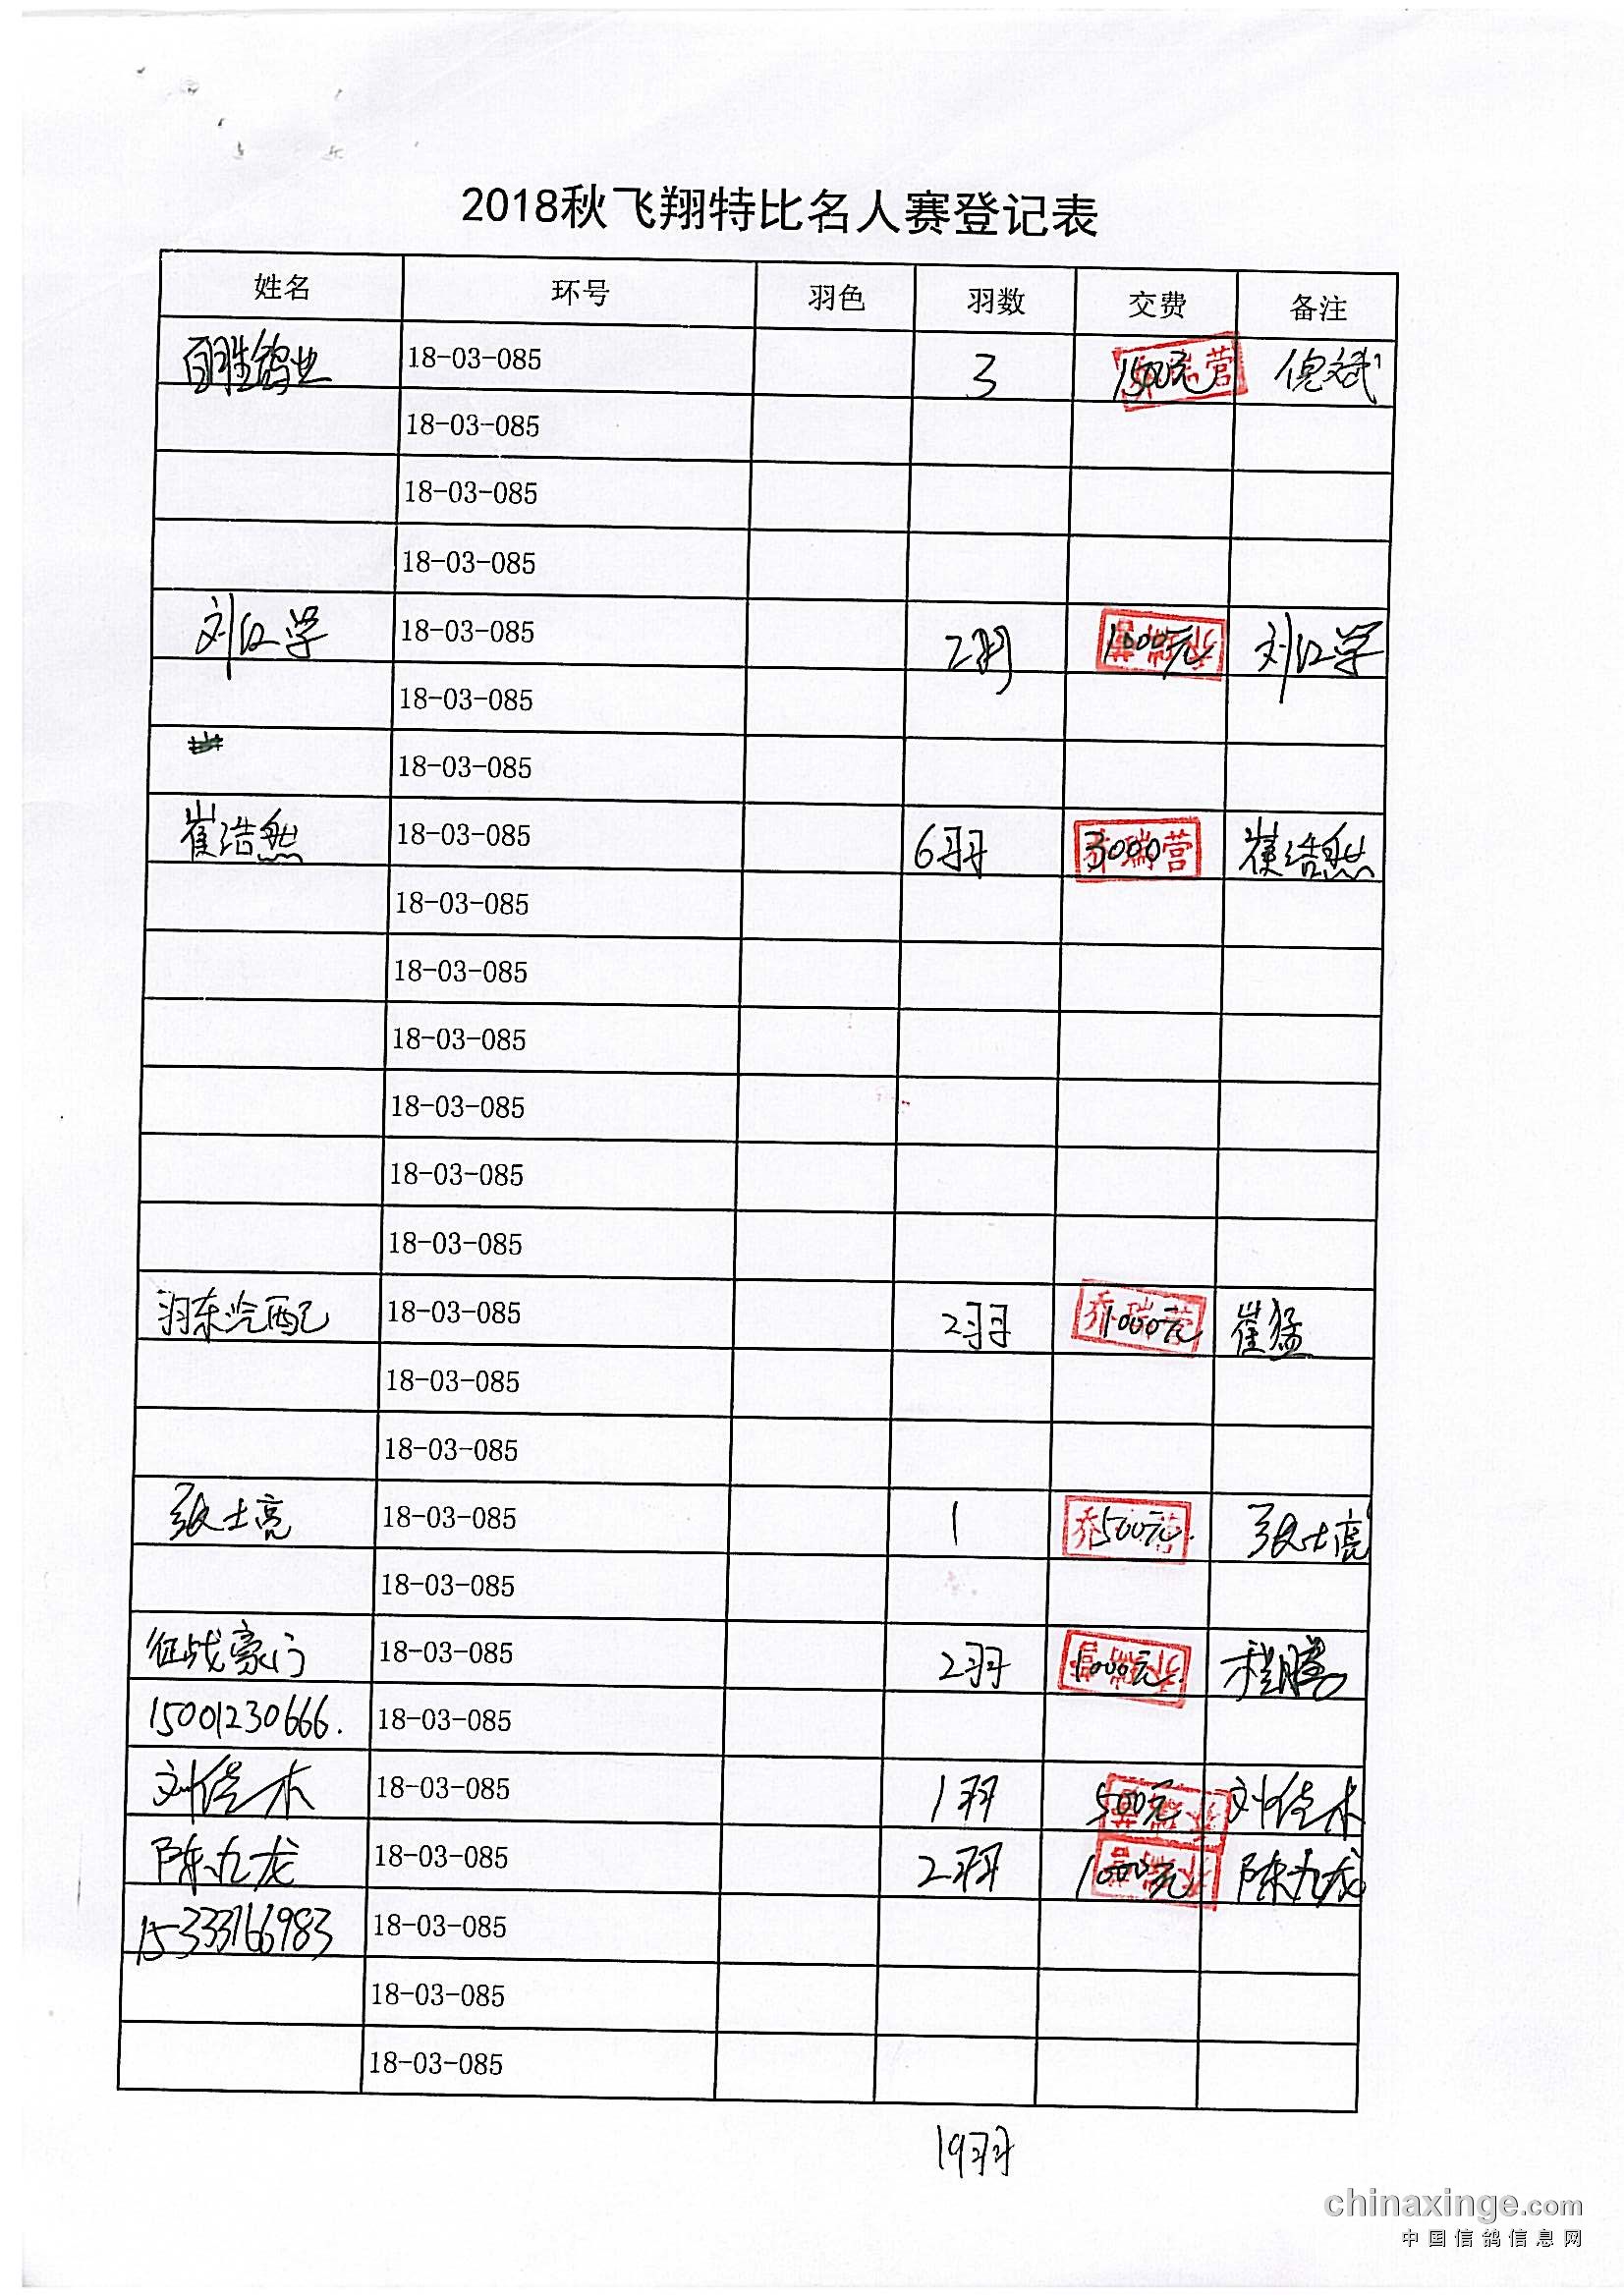 2018秋飞翔特比名人赛登记表
姓名 环号 羽色 羽数 交费 备注
百胜鸽业 18-03-085 3 1500元 倪斌
18-03-085
18-03-085
18-03-085
刘江学 18-03-085 2羽 1000元 刘江学
18-03-085
18-03-085
崔浩然 18-03-085 6羽 3000 崔浩然
18-03-085
18-03-085
18-03-085
18-03-085
18-03-085
18-03-085
东汽配 18-03-085 2羽 1000元 崔猛
18-03-085
18-03-085
张士亮 18-03-085 1 500元. 张士亮
18-03-085
征战豪门 18-03-085 2羽 1000元. 程腾
15001230666. 18-03-085
刘佳木 18-03-085 1羽 500元 刘佳木
陈九龙 18-03-085 2羽 1000元 陈九龙
15333766983 18-03-085
18-03-085
18-03-085
19羽
chinaxinge.com
中国信鸽信息网